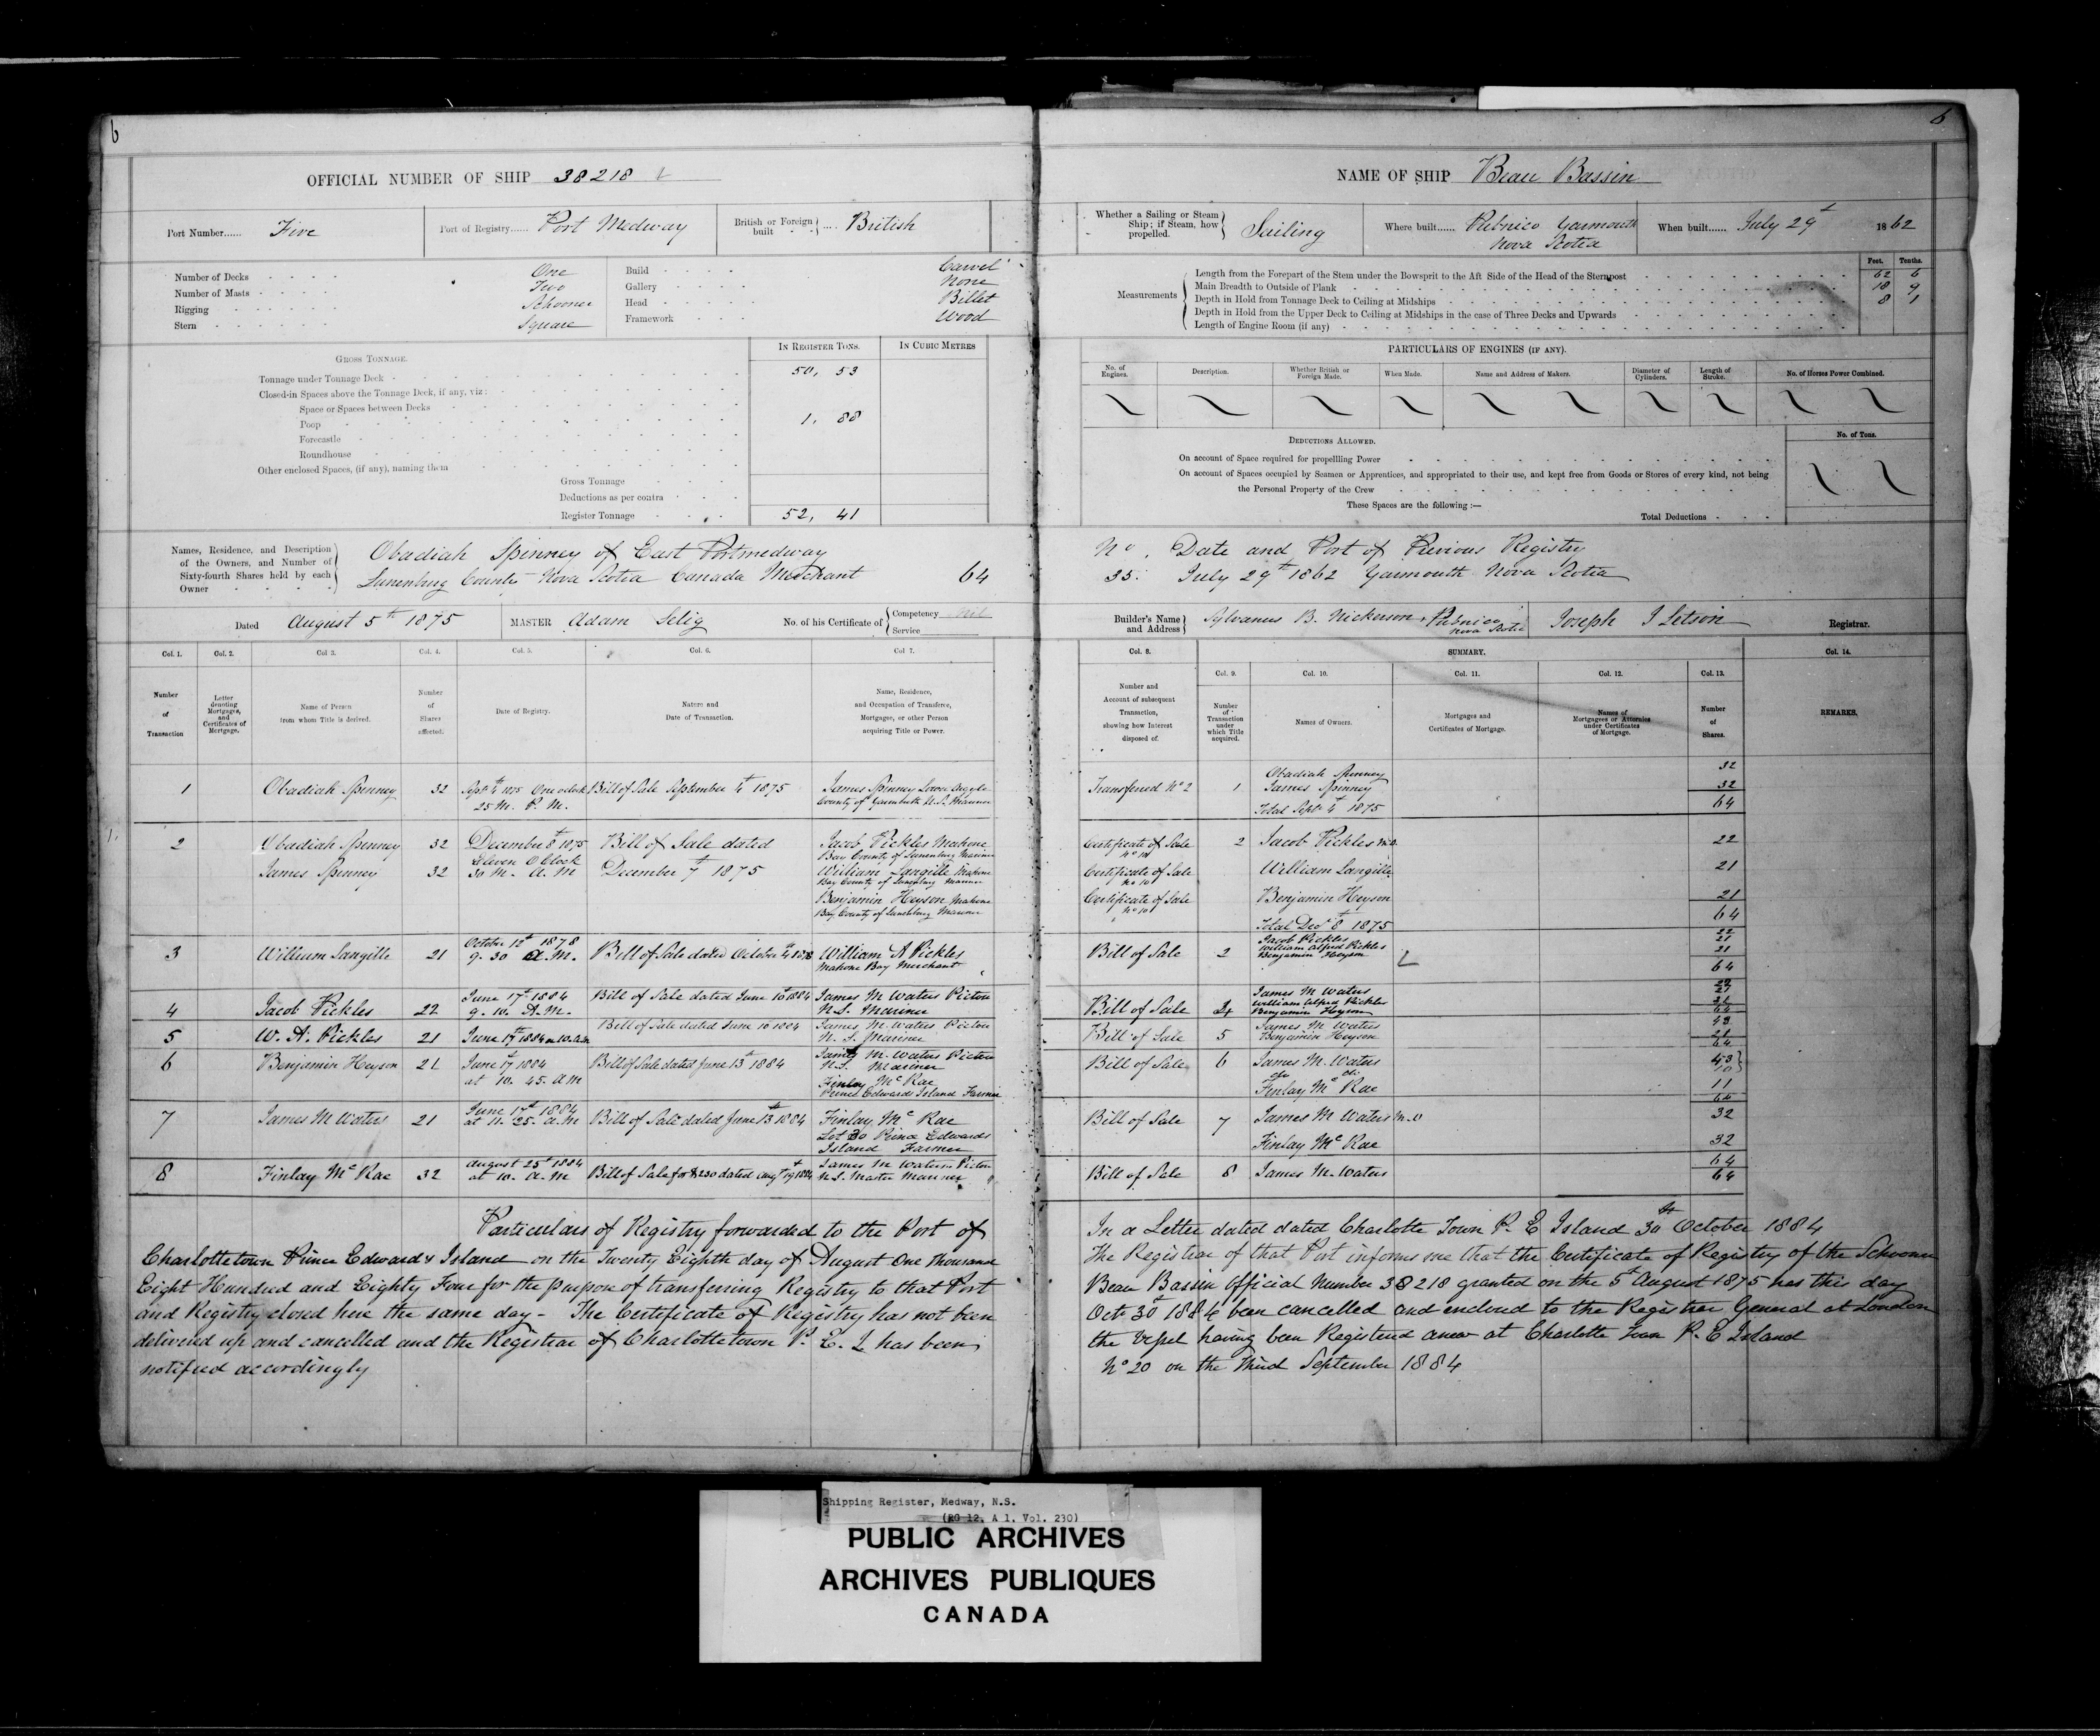 6
OFFICIAL NUMBER OF SHIP 38218
Port Number...... Five
Port of Registry...... Port Medway
British or Foreign built .... British
Number of Decks One
Number of Masts Two
Rigging Schooner
Stern Square
Build Carvel
Gallery None
Head Billet
Framework Wood
GROSS TONNAGE.
IN REGISTER TONS.
IN CUBIC METRES
Tonnage under Tonnage Deck 50, 53
Closed-in Spaces above the Tonnage Deck, if any, viz:
Space or Spaces between Decks
Poop 1, 88
Forecastle
Roundhouse
Other enclosed Spaces, (if any), naming them
Gross Tonnage
Deductions as per contra
Register Tonnage 52, 41
Names, Residence, and Description of the Owners, and Number of Sixty-fourth Shares held by each Owner
Obadiah Spinney of East Portmedway
Lunenburg County Nova Scotia Canada Merchant 64
Dated August 5th 1875
MASTER Adam Selig
No. of his Certificate of Competency nil
Service
Col. 1. Col. 2. Col. 3. Col. 4. Col. 5. Col. 6. Col. 7.
Number of Transaction
Letter denoting Mortgages, and Certificates of Mortgage.
Name of Person from whom Title is derived.
Number of Shares affected.
Date of Registry.
Nature and Date of Transaction.
Name, Residence, and Occupation of Transferee, Mortgagee, or other Person acquiring Title or Power.
1 Obadiah Spinney 32 Sept 4th 1875 One oclock Bill of Sale September 4th 1875 James Spinney Lower Argyle
25 M. P. M. County of Yarmouth N.S. Mariner
2 Obadiah Spinney 32 December 8th 1875 Bill of Sale dated Jacob Pickles Mahone
Eleven O Clock Bay County of Lunenburg Mariner
James Spinney 32 30 M. A. M December 7th 1875 William Langille Mahone
Bay County of Lunenburg Mariner
Benjamin Heyson Mahone
Bay County of Lunenburg Mariner
3 William Langille 21 October 12th 1878 Bill of Sale dated October 4th 1878 William A Pickles
9. 30 A.M. Mahone Bay Merchant
4 Jacob Pickles 22 June 17th 1884 Bill of Sale dated June 10th 1884 James M Waters Pictou
9. 10. A.M. N.S. Mariner
5 W. A. Pickles 21 June 17th 1884 10. a.m Bill of Sale dated June 10 1884 James M. Waters Pictou
N. S. Mariner
6 Benjamin Heyson 21 June 17 1884 Bill of Sale dated June 13th 1884 James M. Waters Pictou
at 10. 45. A M N.S. Mariner
Finlay Mc Rae
Prince Edwards Island Farmer
7 James M Waters 21 June 17th 1884 Bill of Sale dated June 13th 1884 Finlay Mc Rae
at 11. 25. a.m Lot 30 Prince Edwards
Island Farmer
8 Finlay Mc Rae 32 August 25th 1884 Bill of Sale for $230 dated Augt 19th 1884 James M Waters Pictou
at 10. A.M N.S. Master Mariner
Particulars of Registry forwarded to the Port of
Charlottetown Prince Edwards Island on the Twenty Eighth day of August One thousand
Eight Hundred and Eighty Four for the purpose of transferring Registry to that Port
and Registry closed here the same day - The Certificate of Registry has not been
delivered up and cancelled and the Registrar of Charlottetown P. E. I. has been
notified accordingly
6
NAME OF SHIP Beau Bassin
Whether a Sailing or Steam Ship; if Steam, how propelled. Sailing
Where built...... Pubnico Yarmouth
Nova Scotia
When built...... July 29th 1862
Feet. Tenths.
Measurements
Length from the Forepart of the Stem under the Bowsprit to the Aft Side of the Head of the Sternpost 62 6
Main Breadth to Outside of Plank 18 9
Depth in Hold from Tonnage Deck to Ceiling at Midships 8 1
Depth in Hold from the Upper Deck to Ceiling at Midships in the case of Three Decks and Upwards
Length of Engine Room (if any)
PARTICULARS OF ENGINES (IF ANY).
No. of Engines. Description. Whether British or Foreign Made. When Made. Name and Address of Makers. Diameter of Cylinders. Length of Stroke. No. of Horses Power Combined.
DEDUCTIONS ALLOWED.
No. of Tons.
On account of Space required for propelling Power
On account of Spaces occupied by Seamen or Apprentices, and appropriated to their use, and kept free from Goods or Stores of every kind, not being
the Personal Property of the Crew
These Spaces are the following :—
Total Deductions
No. Date and Port of Previous Registry
35. July 29th 1862 Yarmouth Nova Scotia
Builder's Name and Address Sylvanus B. Nickerson, Pubnico
Nova Scotia
Joseph I Letson Registrar.
Col. 8. SUMMARY. Col. 14.
Col. 9. Col. 10. Col. 11. Col. 12. Col. 13.
Number and Account of subsequent Transaction, showing how Interest disposed of.
Number of Transaction under which Title acquired.
Names of Owners.
Mortgages and Certificates of Mortgage.
Names of Mortgagees or Attornies under Certificates of Mortgage.
Number of Shares.
REMARKS.
Transferred No 2 1 Obadiah Spinney 32
James Spinney 32
Total Sept 4th 1875 64
Certificate of Sale No 10 2 Jacob Pickles M.O. 22
Certificate of Sale No 10 William Langille 21
Certificate of Sale No 10 Benjamin Heyson 21
64
Total Decr 8th 1875
Jacob Pickles 22
William Alfred Pickles 21
Bill of Sale 2 Benjamin Heyson 21
64
James M Waters 22
William Alfred Pickles 21
Bill of Sale 4 Benjamin Heyson 21
64
James M Waters 43
Bill of Sale 5 Benjamin Heyson 21
64
Bill of Sale 6 James M. Waters 43
do do 10
Finlay Mc Rae 11
64
Bill of Sale 7 James M Waters M.O 32
Finlay Mc Rae 32
64
Bill of Sale 8 James M. Waters 64
In a Letter dated dated Charlotte Town P. E Island 30th October 1884
The Registrar of that Port informs me that the Certificate of Registry of the Schooner
Beau Bassin Official Number 38218 granted on the 5th August 1875 has this day
Octr 30 1884 been cancelled and enclosed to the Registrar General at London
the Vessel having been Registered anew at Charlotte Town P. E Island
No 20 on the third September 1884
Shipping Register, Medway, N.S.
(RG 12, A 1, Vol. 230)
PUBLIC ARCHIVES
ARCHIVES PUBLIQUES
CANADA